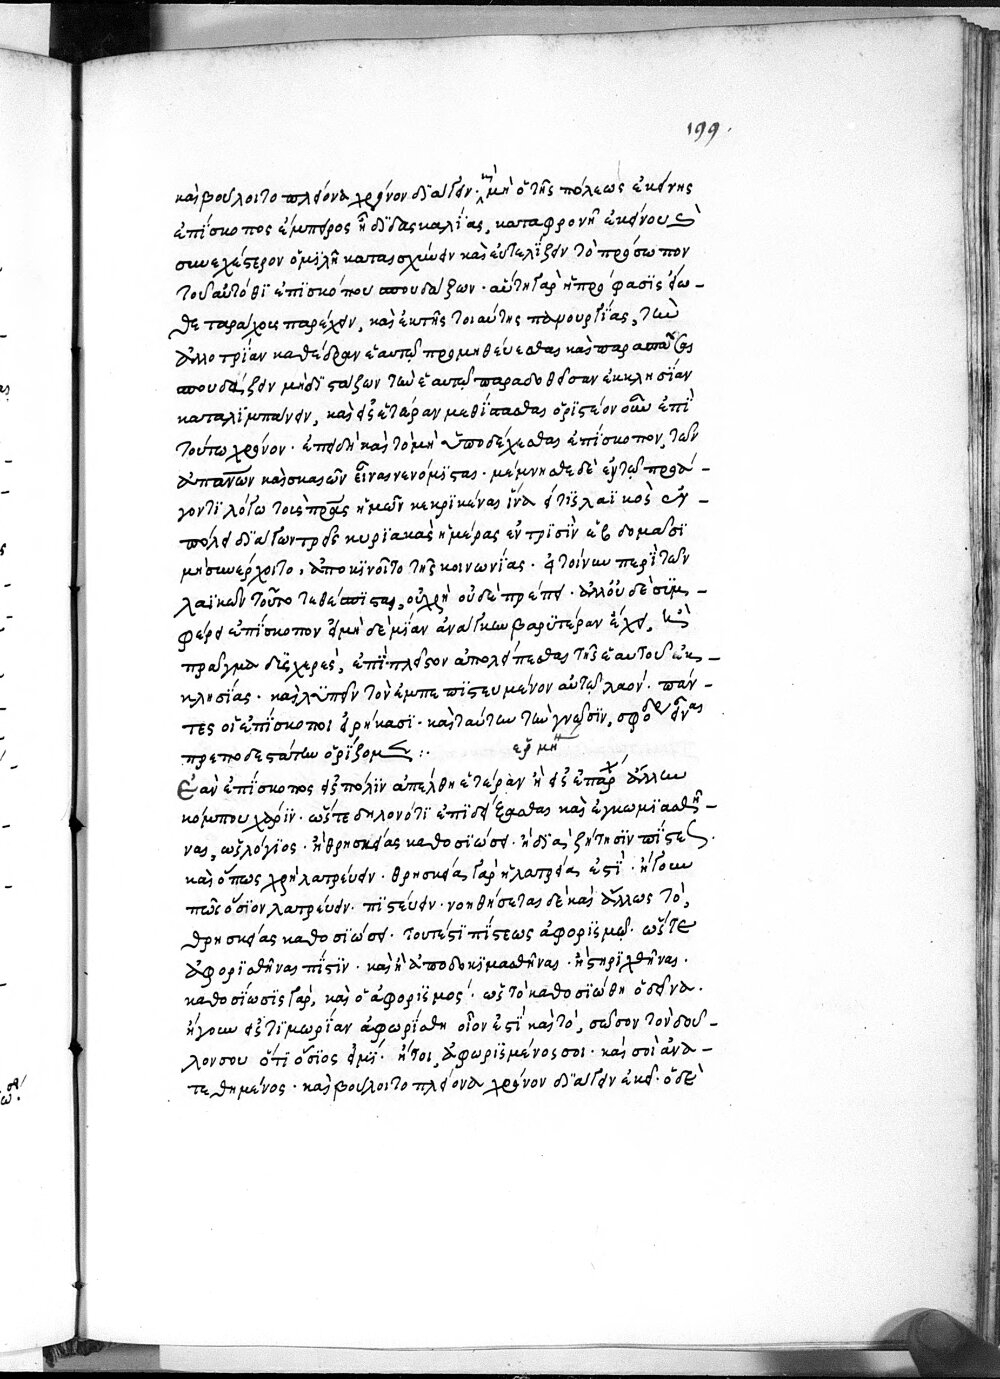 199.
καὶ βούλοιτο πλείονα χρόνον διάγειν· καὶ μὴ ὁ τῆς πόλεως ἐκείνης
ἐπίσκοπος ἔμπειρος ᾖ διδασκαλίας, καταφρονῇ ἐκείνου καὶ
συνεχέστερον ὁμιλῇ καταισχύνειν καὶ εὐτελίζειν τὸ πρόσωπον
τοῦ αὐτόθι ἐπισκόπου σπουδάζων· αὕτη γὰρ ἡ πρόφασις εἴω-
θε ταράχους παρέχειν, καὶ ἐκ τῆς τοιαύτης πανουργίας, τὴν
ἀλλοτρίαν καθέδραν ἑαυτῷ προμηθεύεσθαι καὶ παρασπᾶσθαι
σπουδάζειν μὴ διστάζων τὴν ἑαυτῷ παραδοθεῖσαν ἐκκλησίαν
καταλιμπάνειν, καὶ εἰς ἑτέραν μεθίστασθαι ὁριστέον οὖν ἐπὶ
τούτῳ χρόνον· ἐπειδὴ καὶ τὸ μὴ ὑποδέχεσθαι ἐπίσκοπον, τῶν
ἀπανθρώπων καὶ σκαιῶν εἶναι νενόμισται· μέμνησθε δὲ ἐν τῷ προά-
γοντι λόγῳ τοὺς πατέρας ἡμῶν κεκρικέναι ἵνα εἴ τις λαϊκὸς ἐν
πόλει διάγων τρεῖς κυριακὰς ἡμέρας ἐν τρισὶν ἑβδομάσι
μὴ συνέρχοιτο, ἀποκινοῖτο τῆς κοινωνίας· εἰ τοίνυν περὶ τῶν
λαϊκῶν τοῦτο τεθέσπισται, οὐ χρὴ οὐδὲ πρέπει· ἀλλ' οὐδὲ συμ-
φέρει ἐπίσκοπον εἰ μηδεμίαν ἀνάγκην βαρυτέραν ἔχει, ἢ
πρᾶγμα δυσχερές, ἐπὶ πλεῖστον ἀπολείπεσθαι τῆς ἑαυτοῦ ἐκ-
κλησίας· καὶ λυπεῖν τὸν ἐμπεπιστευμένον αὐτῷ λαόν. πάν-
τες οἱ ἐπίσκοποι εἰρήκασι· καὶ ταύτην τὴν γνώμην, σφόδρα εἶναι
πρεπωδεστάτην ὁρίζομεν :·
ἑρμη
Ἐὰν ἐπίσκοπος εἰς πόλιν ἀπέλθῃ ἑτέραν ἢ εἰς ἐπαρχίαν ἄλλην
κόμπου χάριν· ὥστε δηλονότι ἐπιδείξασθαι καὶ ἐγκωμιασθῆ-
ναι, ὡς λόγιος· ἢ θρησκείας καθοσιώσει· ἢ διὰ ζήτησιν πίστεως·
καὶ ὅπως χρὴ λατρεύειν· θρησκεία γὰρ ἡ λατρεία ἐστί· ἤγουν
πῶς ὅσιον λατρεύειν· πιστεύειν· νοηθήσεται δὲ καὶ ἄλλως τὸ,
θρησκείας καθοσιώσει· τουτέστι πίστεως ἀφορισμῷ· ὥστε
ἀφορισθῆναι πίστιν· καὶ ἢ ἀποδοκιμασθῆναι· ἢ στηριχθῆναι·
καθοσίωσις γάρ, καὶ ὁ ἀφορισμός· ὡς τὸ καθοσιώθη ὁ δεῖνα·
ἤγουν εἰς τιμωρίαν ἀφωρίσθη οἷον ἐστὶ καὶ τὸ, σῶσον τὸν δοῦ-
λον σου ὅτι ὅσιος εἰμί· ἤτοι, ἀφωρισμένος σοι· καὶ σοὶ ἀνα-
τεθημένος· καὶ βούλοιτο πλείονα χρόνον διάγειν ἐκεῖ· ὁ δὲ